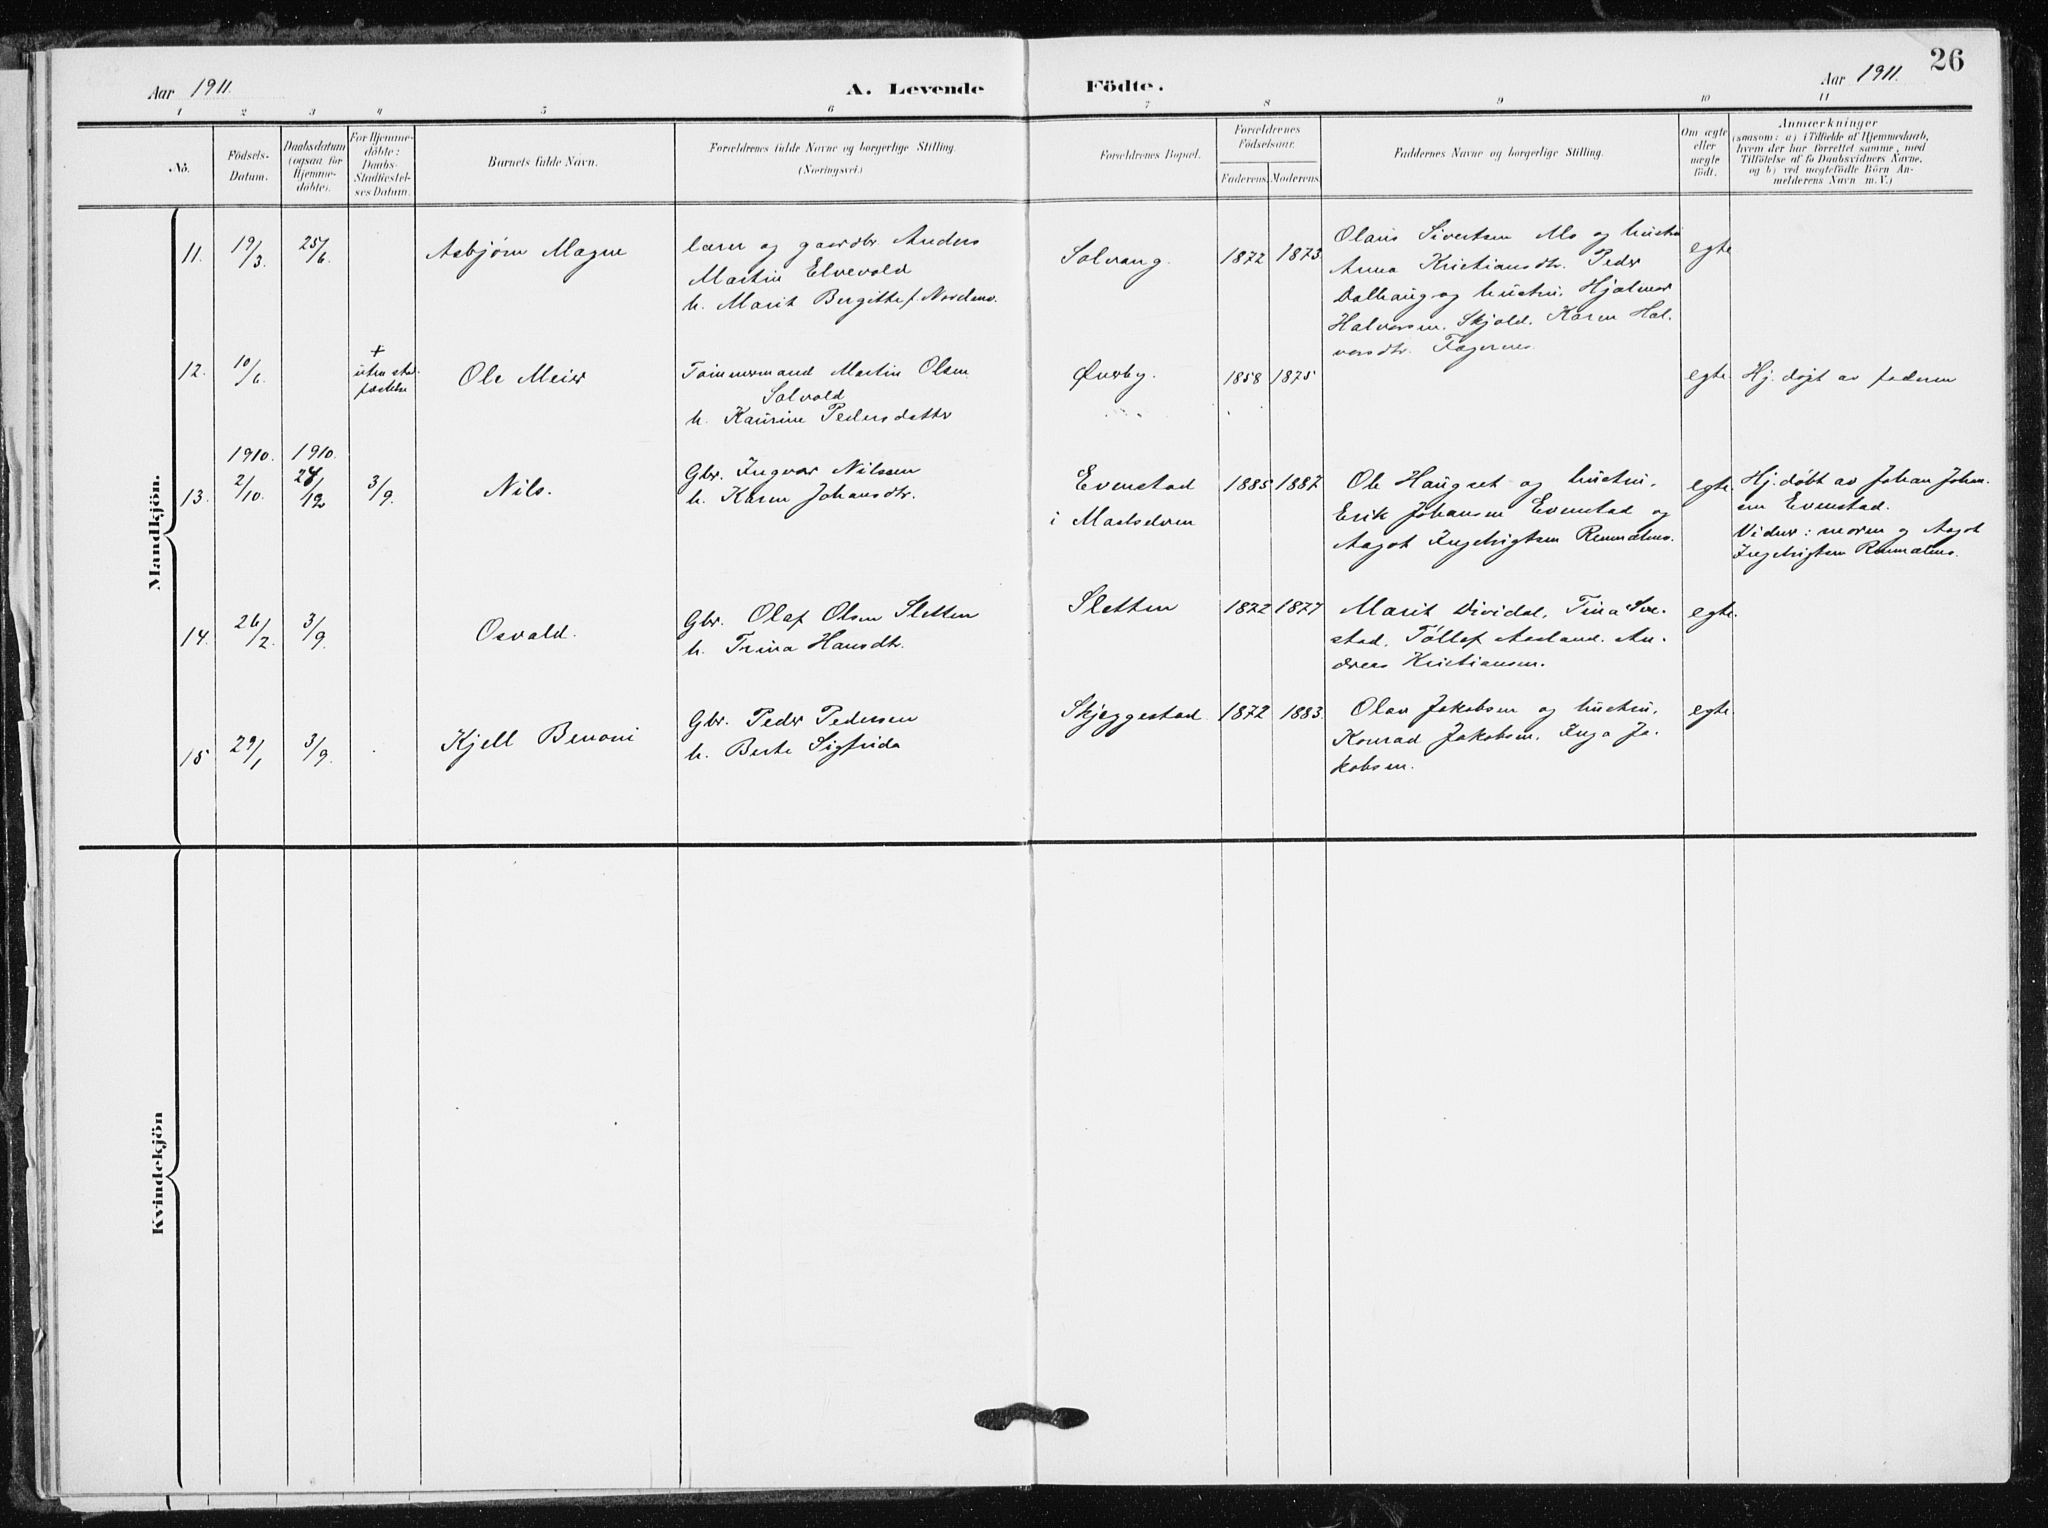 26
Aar 1911.
A. Levende Födte.
Aar 1911.
1 2 3 4 5 6 7 8 9 10 11
No.
Födsels-
Datum.
Daabsdatum
(ogsaa for
Hjemme-
döbte).
For Hjemme-
döbte:
Daabs-
Stadfæstel-
ses Datum.
Barnets fulde Navn.
Forældrenes fulde Navne og borgerlige Stilling.
(Næringsvei.)
Forældrenes Bopæl.
Forældrenes
Födselsaar.
Faderens. Moderens.
Faddernes Navne og borgerlige Stilling.
Om ægte
eller
uægte
födt.
Anmærkninger
(saasom: a) i Tilfælde af Hjemmedaab,
hvem der har forrettet samme, med
Tilföielse af to Daabsvidners Navne,
og b) ved uægtefödte Börn An-
melderens Navn m. V.)
Mandkjön.
11. 19/3. 25/6. Asbjørn Magne
lærer og gaardbr. Anders
Martin Elvevold
h. Marit Bergitte f. Nordmo.
Solvang. 1872 1873.
Olaus Sivertsen Mo og hustru
Anna Kristiansdtr. Peder
Dalhaug og hustru. Hjalmar
Halvorsen. Skjold. Karen Hal-
vorsdtr. Fagernes.
egte
12. 10/6. + uten stad
fæstelse
Ole Meier
Tømmermand Martin Olsen
Solvold
h. Kaurine Pedersdatter
Øverby. 1858 1875
egte. Hj. døpt av faderen
13. 1910. 2/10. 1910. 28/12 3/9. Nils.
Gbr. Ingvar Nilssen
h. Karen Johansdtr.
Evenstad
i Maalselven
1885 1887
Ole Haugset og hustru.
Erik Johansen Evenstad og
Aagot Ingebrigtsen Renmælmo.
egte.
Hj. døbt av Johan Johan-
sen Evenstad.
Vidner: moren og Aagot
Ingebrigtsen Renmælmo.
14. 26/2. 3/9. Osvald.
Gbr. Olaf Olsen Sletten
h. Trina Hansdtr.
Sletten 1872 1877
Marit Dividal, Tina
stad, Tollef Aasland. An-
dreas Kristiansen.
egte.
15 29/1 3/9. Kjell Benoni
Gbr. Peder Pedersen
h. Berte Sigfrida
Skjeggestad 1872 1883.
Olav Jakobsen og hustru.
Konrad Jakobsen. Inga Ja-
kobsen.
egte.
Kvindekjön